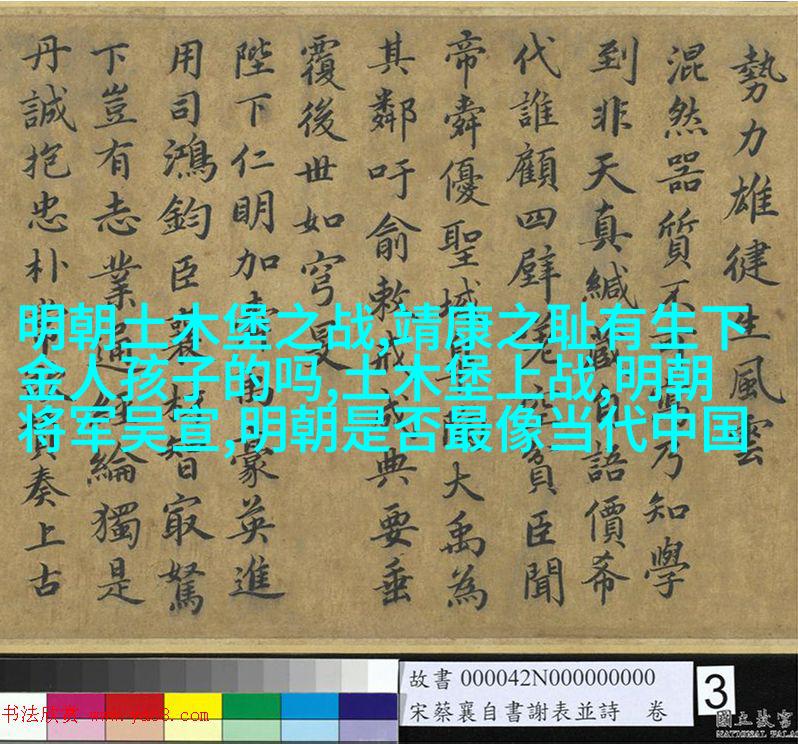 勢力雄健生風雲
混然器質不乃知學
到非天真緘藏自語價希
代誰顧四壁貧臣聞
帝舜優聖域大禹為
其鄰吁俞敕戒成典要垂
覆後世如穹旻
陛下仁明加蒙英進
用司鴻鈞臣襄智寂駑
下豈有志業通經綸獨是
丹誠抱忠朴奏上古
明朝土木堡之战,靖康之耻有生下
金人孩子的吗,土木堡上战,明朝
将军吴宣,明朝是否最像当代中国
故書 000042N000000000
宋蔡襄自書謝表並詩 卷
3
書法欣赏 www.yac8.com
國立故宮
NATIONAL PALA